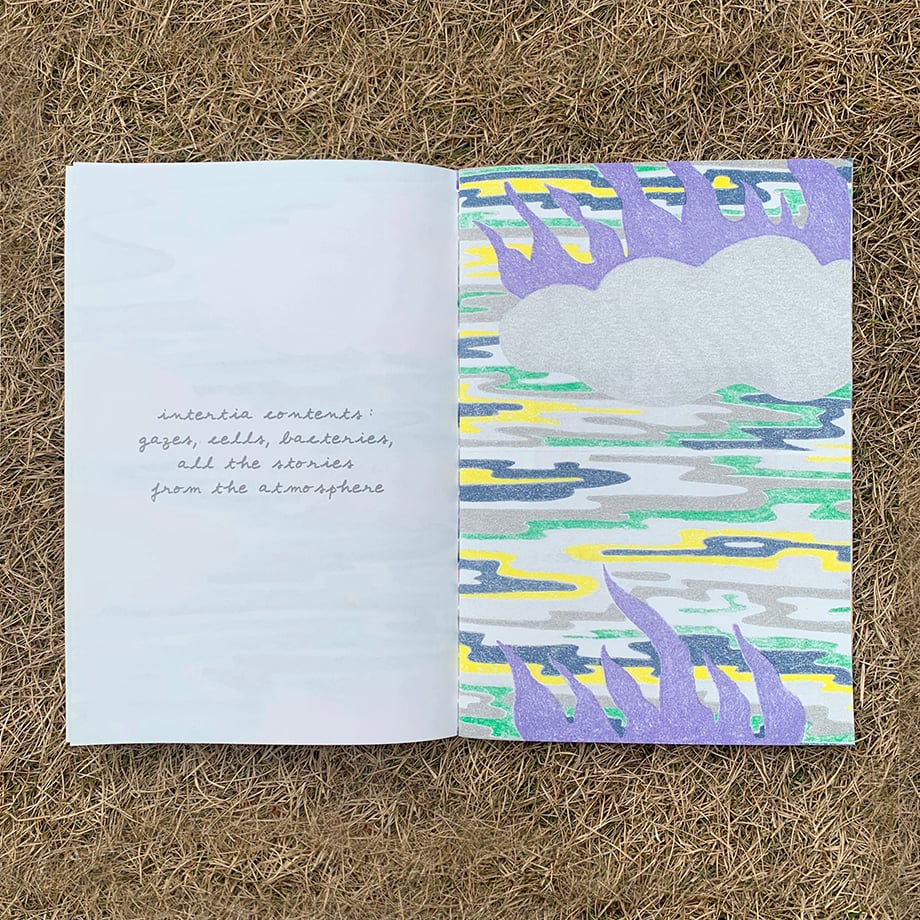 intertia contents:
gazes, cells, bacteries,
all the stories
from the atmosphere